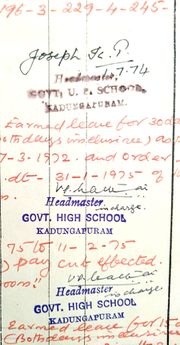 196-3-229-4-245-
Joseph K. P.
7.74
Headmaster,
GOVT. U. P. SCHOOL,
KADUNGAPURAM.
Earned leave for 30 da
(Both days inclusive) as
7-3-1972 and order
dt- 31-1-1975 of
Headmaster in charge
GOVT. HIGH SCHOOL
KADUNGAPURAM
75 to 11-2-75
) pay cut effected.
Headmaster in charge
GOVT. HIGH SCHOOL
KADUNGAPURAM
Earned leave for 15 d
(Both days inclusive